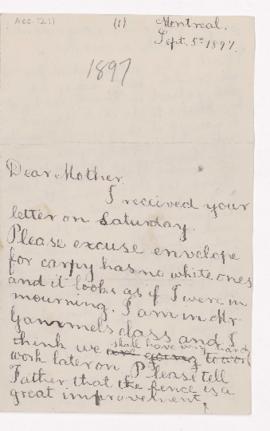 Acc. 1211 (1) Montreal.
Sept. 5th 1897.
1897
Dear Mother
I received your
letter on Saturday.
Please excuse envelope
for carpy has no white ones
and it looks as if I were in
mourning. I am in Mr
Gammels class and I
think we shall have very hard
are going to
work later on. Please tell
Father, that the fence is a
great improvement,